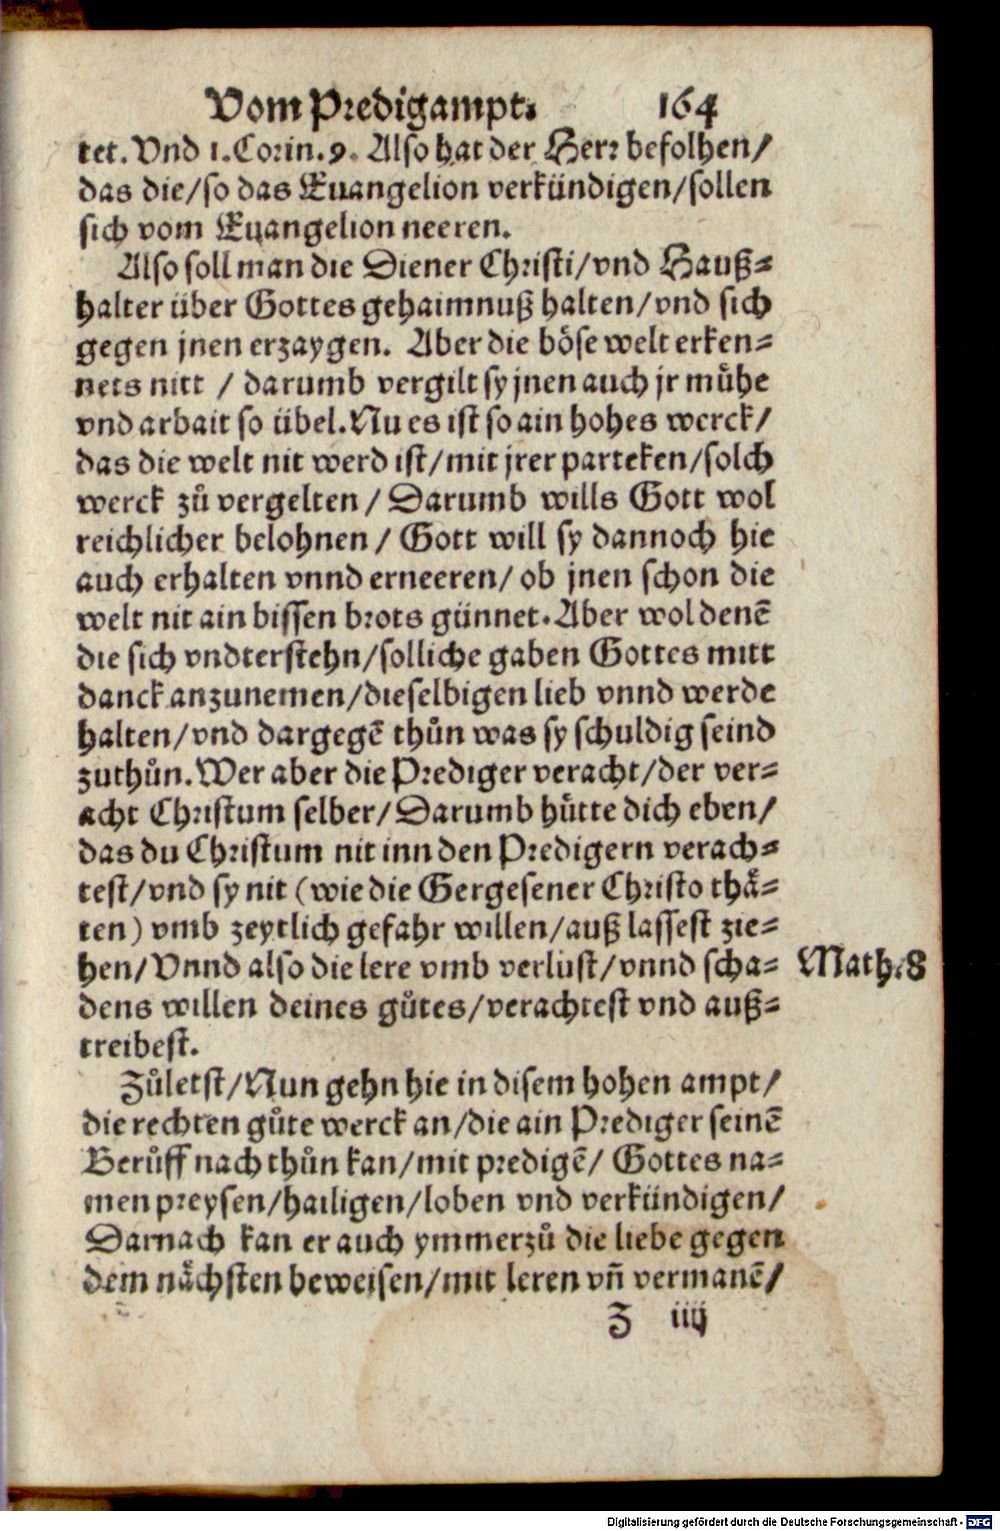 Vom Predigampt. 164
tet. Vnd 1. Corin. 9. Also hat der Herr befolhen/
das die/so das Euangelion verkündigen/sollen
sich vom Euangelion neeren.
Also soll man die Diener Christi/vnd Hauß=
halter über Gottes gehaimnuß halten/vnd sich
gegen jnen erzaygen. Aber die böse welt erken=
nets nitt / darumb vergilt sy jnen auch jr mühe
vnd arbait so übel. Nu es ist so ain hohes werck/
das die welt nit werd ist/mit jrer parteken/solch
werck zů vergelten / Darumb wills Gott wol
reichlicher belohnen / Gott will sy dannoch hie
auch erhalten vnnd erneeren/ ob jnen schon die
welt nit ain bissen brots günnet. Aber wol denẽ
die sich vndterstehn/solliche gaben Gottes mitt
danck anzunemen/dieselbigen lieb vnnd werde
halten/vnd dargegẽ thůn was sy schuldig seind
zuthůn. Wer aber die Prediger veracht/der ver=
acht Christum selber/Darumb hütte dich eben/
das du Christum nit inn den Predigern verach=
test/vnd sy nit (wie die Gergesener Christo thå=
ten) vmb zeytlich gefahr willen/auß lassest zie=
hen/Vnnd also die lere vmb verlust/vnnd scha= Math. 8
dens willen deines gůtes/verachtest vnd auß=
treibest.
Zůletst/Nun gehn hie in disem hohen ampt/
die rechten gůte werck an/die ain Prediger seinẽ
Berůff nach thůn kan/mit predigẽ/ Gottes na=
men preysen/hailigen/loben vnd verkündigen/
Darnach kan er auch ymmerzů die liebe gegen
dem nåchsten beweisen/mit leren vñ vermanẽ/
Z iiij
Digitalisierung gefördert durch die Deutsche Forschungsgemeinschaft - DFG